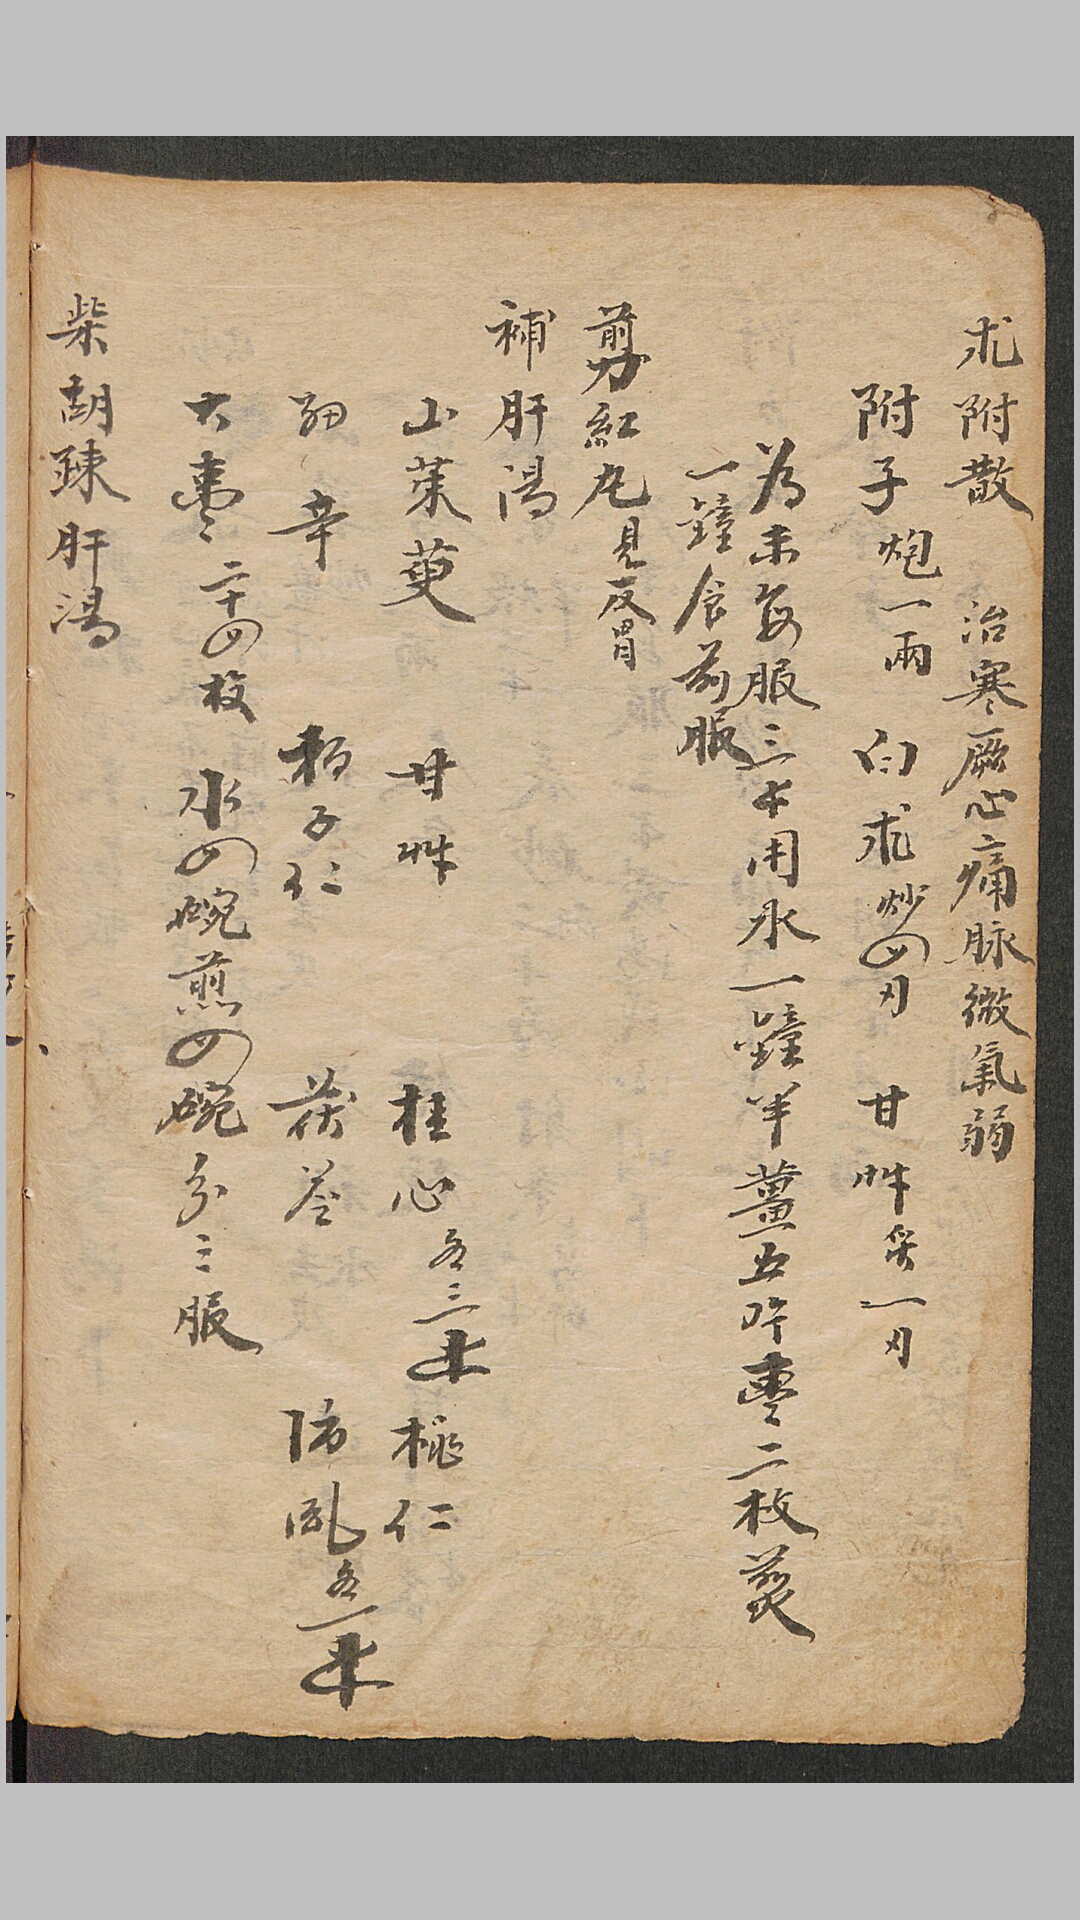 朮附散 治寒厥心痛脉微氣弱
附子炮一兩 白朮炒四刃 甘艸炙一刃
為末每服三十用水一鐘半薑五片棗二枚煎
一鐘食前服
剪紅丸見反胃
補肝湯
山茱萸 甘艸 桂心各三 桃仁
細辛 栢子仁 茯苓 防風各一
大棗二十四枚 水四碗煎四碗分三服
柴胡踈肝湯